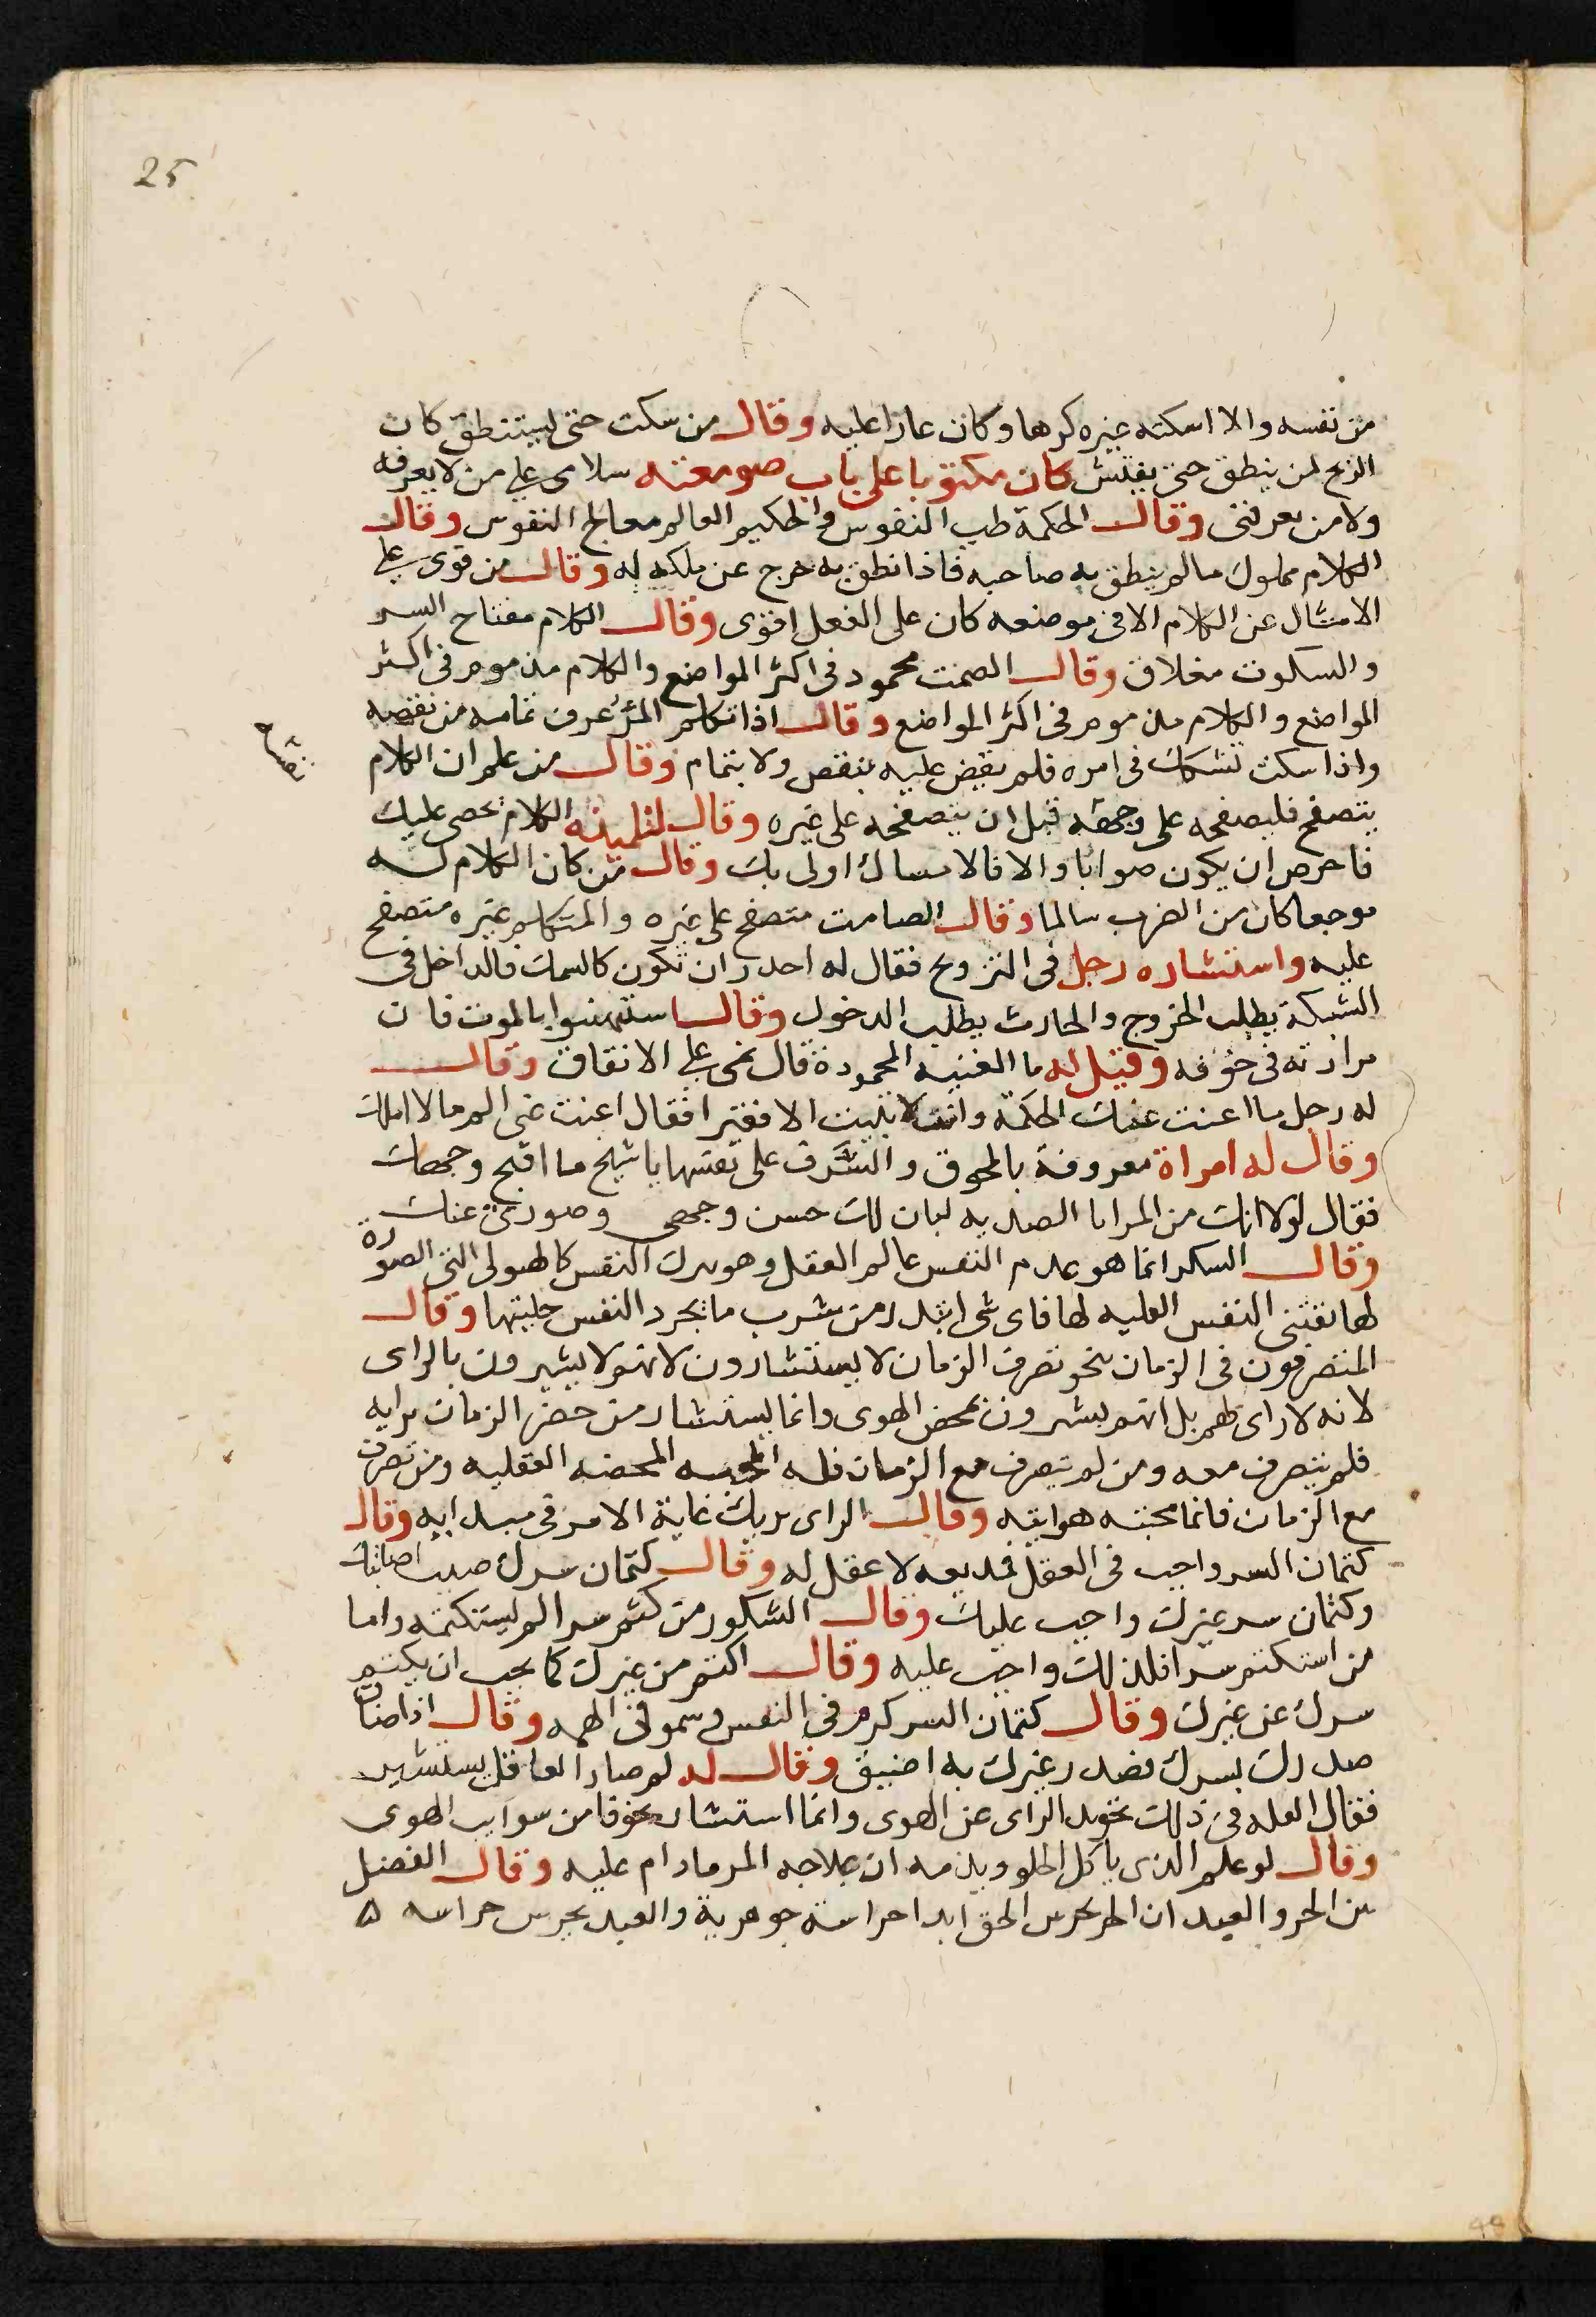 25
من نفسه والا اسكته غيره كرها وكان عارا عليه وقال من سكت حتى يستنطق كان
اربح لمن ينطق حتى يفتش كان مكتوبا على باب صومعته سلامى على من لا يعرفه
ولا من يعرفنى وقال الحكمة طب النفوس والحكيم العالم معالج النفوس وقال
الكلام مملوك ما لم ينطق به صاحبه فاذا نطق به خرج عن ملكه له وقال من قوى على
الامتثال عن الكلام الا فى موضعه كان على الفعل اقوى وقال الكلام مفتاح السر
والسكوت مغلاق وقال الصمت محمود فى اكثر المواضع والكلام مذموم فى اكثر
المواضع والكلام مذموم فى اكثر المواضع وقال اذا تكلم المرُ عرف تمامه من نقصه
نقصه
واذا سكت تشكك فى امره فلم يقض عليه بنقص ولا بتمام وقال من علم ان الكلام
يتصفح فليصفحه على وجهه قبل ان يتصفحه على غيره وقال لتلميذه الكلام يحصى عليك
فاحرص ان يكون صوابا والا فالامساك اولى بك وقال من كان الكلام له
موجعا كان من الضرب سالما وقال الصامت متصفح على غيره والمتكلم غيره متصفح
عليه واستشاره رجل فى التزويج فقال له احذر ان تكون كالسمك فالداخل فى
الشبكة يطلب الخروج والخارج يطلب الدخول وقال استهينوا بالموت فان
مرارته فى خوفه وقيل له ما الغنية المحمودة قال نمى على الانفاق وقال
له رجل ما اغنت عنك الحكمة وانت لا تبيت الا فقيرا فقال اغنت عنى الم ما لا املك
وقال له امراة معروفة بالحمق والسَّرف على نفسها يا شيخ ما اقبح وجهك
فقال لولا انك من المرايا الصديه لبان لك حسن وجهى وصورتى عنك
وقال السكر انما هو عدم النفس عالم العقل وهو يترك النفس كالهيولى التى الصورة
لها تقتنى النفس العليه لها فاى شى اشد من شرب ما يجرد النفس حليتها وقال
المتصرفون فى الزمان نحو تصرف الزمان لا يستشارون لانهم لا يشيرون بالراى
لانه لا راى لهم بل انهم يشيرون بمحض الهوى وانما يستشار من حضر الزمان برايه
فلم يتصرف معه ومن لم يتصرف مع الزمان فله المحبه المحضه العقليه ومن تصرف
مع الزمان فانما محبته هوايته وقال الراى يريك غاية الامر فى مبدايه وقال
كتمان السر واجب فى العقل فمذيعه لا عقل له وقال كتمان سرك صيب اصابتك
وكتمان سر غيرك واجب عليك وقال الشكور من كتم سرا لم يستكتمه واما
من استكتم سرا فلذلك واجب عليه وقال اكتم من غيرك كما يجب ان يكتم
سرك عن غيرك وقال كتمان السر كرم فى النفس وسمو فى الهمه وقال اذا ضاق
صدرك بسرك فصدر غيرك به اضيق وقال له لم صار العاقل يستشير
فقال العله فى ذلك تجويد الراى عن الهوى وانما استشار خوفا من سوايب الهوى
وقال لو علم الذى ياكل الحلو ويذمه ان علاجه المر ما دام عليه وقال الفضل
بين الحر والعبد ان الحر يحرس الحق ابدا حراسة جوهرية والعبد يحرس حراسه